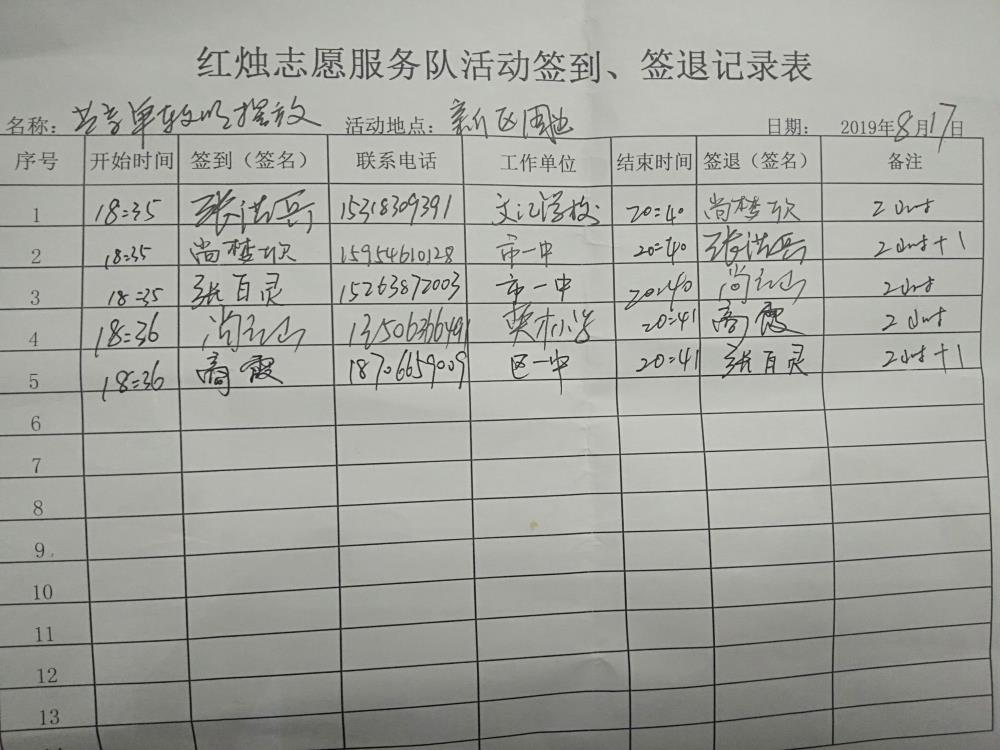 红烛志愿服务队活动签到、签退记录表
名称：共享单车文明摆放 活动地点：新区周边 日期： 2019年8月17日
序号 开始时间 签到（签名） 联系电话 工作单位 结束时间 签退（签名） 备注
1 18:35 张洪岳 15318309391 文汇学校 20:40 尚梦欣 2小时
2 18:35 尚梦欣 15954610128 市一中 20:40 张洪岳 2小时+1
3 18:35 张百灵 15263872003 市一中 20:40 尚红山 2小时
4 18:36 尚红山 13150636649 小学 20:41 高霞 2小时
5 18:36 高霞 18706659009 区一中 20:41 张百灵 2小时+1
6
7
8
9
10
11
12
13